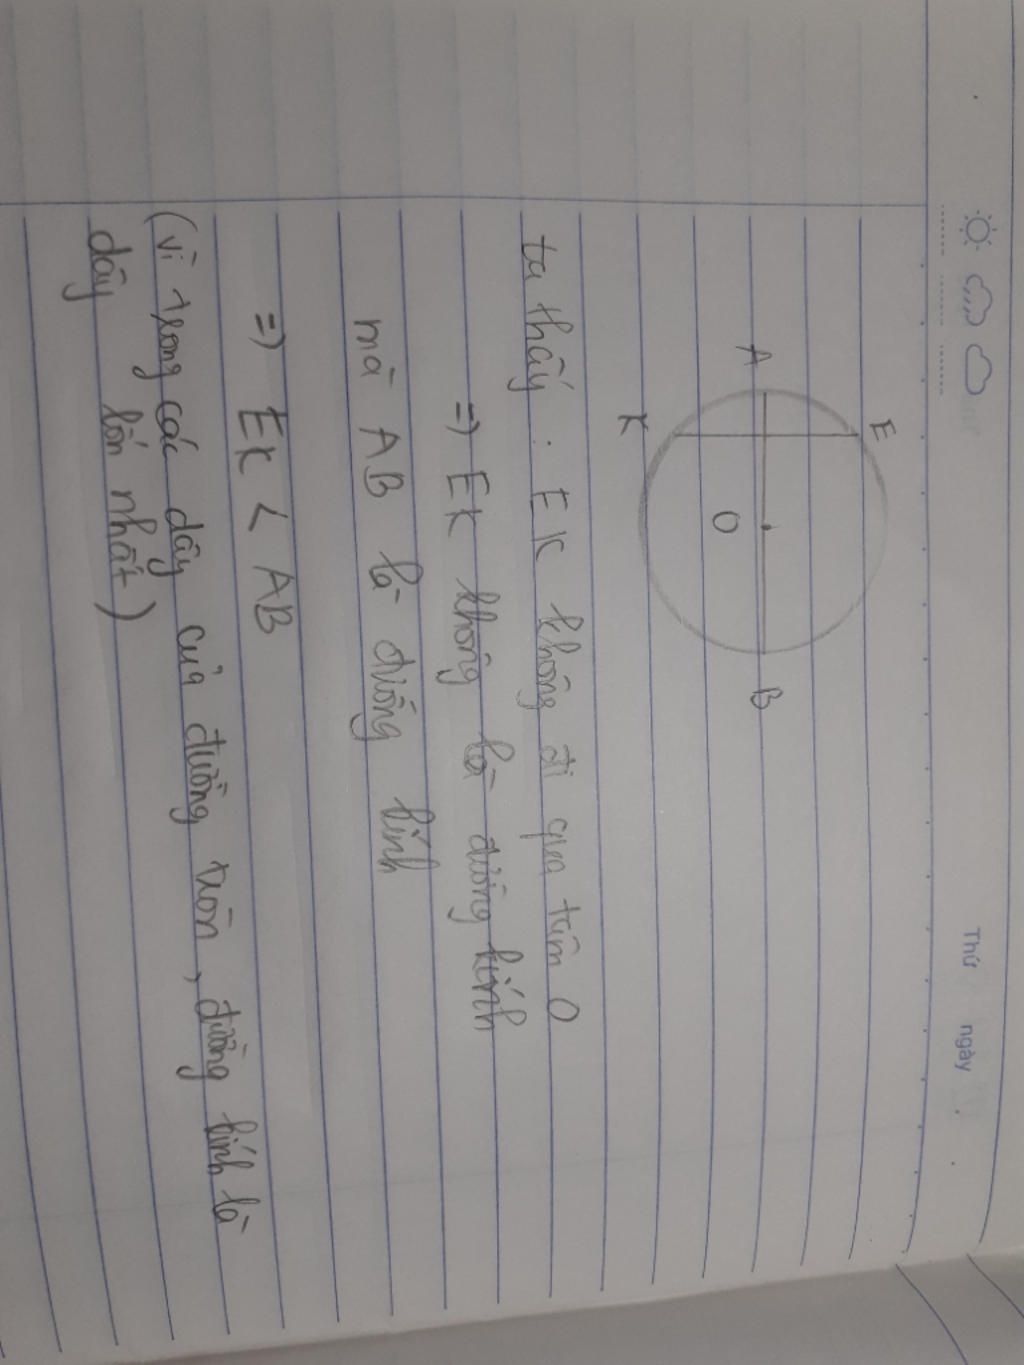 Thứ ngày
E
A
B
O
K
ta thấy : EK không đi qua tâm O
=) EK không là đường kính
mà AB là đường kính
=) EK < AB
(vì trong các dây của đường tròn, đường kính là
dây lớn nhất)